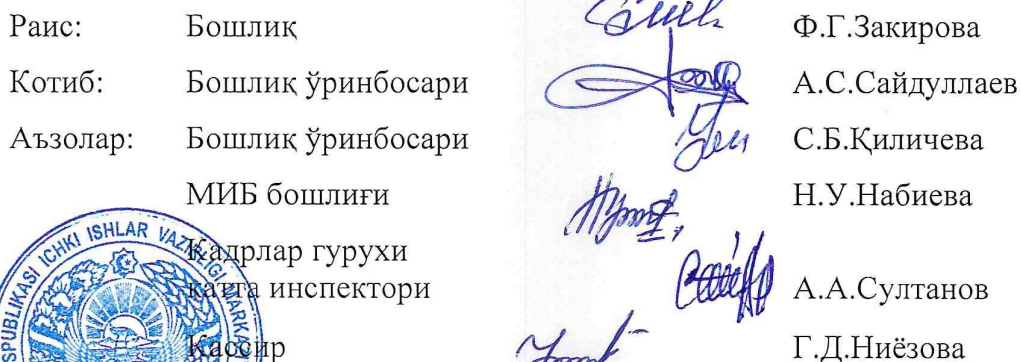 Раис: Бошлиқ Ф.Г.Закирова
Котиб: Бошлиқ ўринбосари А.С.Сайдуллаев
Аъзолар: Бошлиқ ўринбосари С.Б.Қиличева
МИБ бошлиғи Н.У.Набиева
Кадрлар гурухи
катта инспектори А.А.Султанов
Кассир Г.Д.Ниёзова
SPUBLIKASI ICHKI ISHLAR VAZIRLIGI MARKA